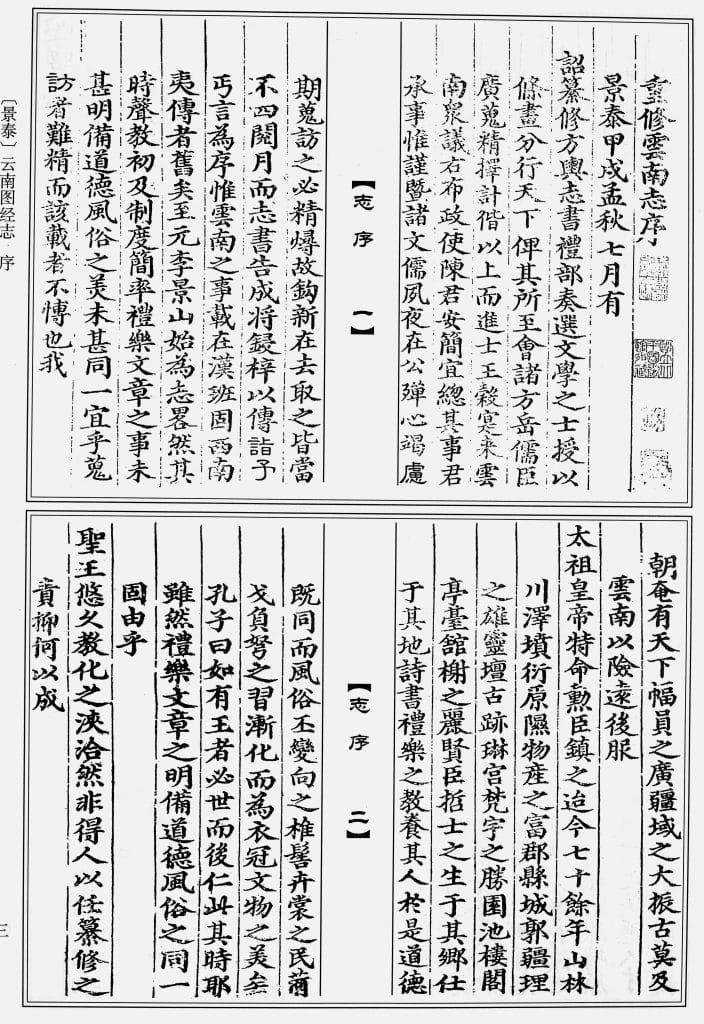 重修雲南志序
景泰甲戌孟秋七月有
詔纂修方輿志書禮部奏選文學之士授以
條畫分行天下俾其所至會諸方岳儒臣
廣蒐精擇計偕以上而進士王穀寔来雲
南眾議右布政使陳君安簡宜總其事君
承事惟謹暨諸文儒夙夜在公殫心竭慮
【志序 一】
期蒐訪之必精燖故鉤新在去取之皆當
不四閱月而志書告成將録梓以傳詣予
丐言為序惟雲南之事載在漢班固西南
夷傳者舊矣至元李景山始為志畧然其
時聲教初及制度簡率禮樂文章之事未
甚明備道德風俗之美未甚同一宜乎蒐
訪者難精而該載者不愽也我
朝奄有天下幅員之廣疆域之大振古莫及
雲南以險遠後服
太祖皇帝特命勲臣鎮之迨今七十餘年山林
川澤墳衍原隰物産之富郡縣城郭疆理
之雄靈壇古跡琳宫梵宇之勝園池樓閣
亭臺舘榭之麗賢臣哲士之生于其郷仕
于其地詩書禮樂之教養其人於是道德
【志序 二】
既同而風俗丕變向之椎髻卉裳之民
戈負弩之習漸化而為衣冠文物之美矣
孔子曰如有王者必世而後仁此其時耶
雖然禮樂文章之明備道德風俗之同一
固由乎
聖王悠久教化之浹洽然非得人以任纂修之
責抑何以成
〔景泰〕云南图经志 序
三